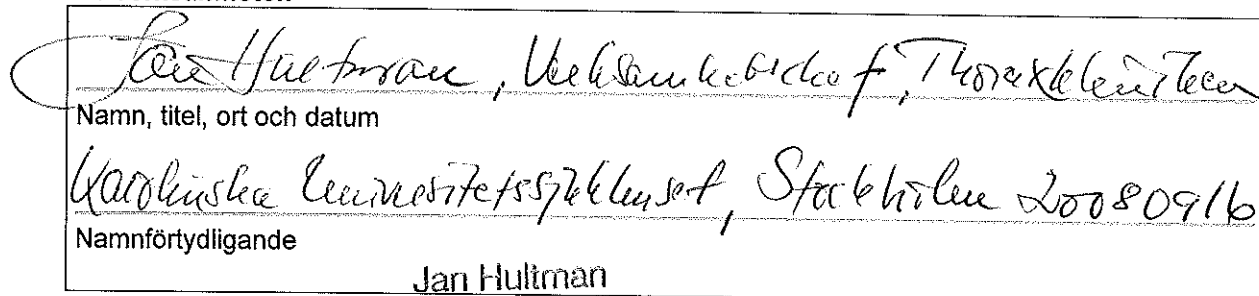 Jan Hultman, Verksamhetschef, Thoraxkliniken
Namn, titel, ort och datum
Karolinska Universitetssjukhuset, Stockholm 20080916
Namnförtydligande
Jan Hultman